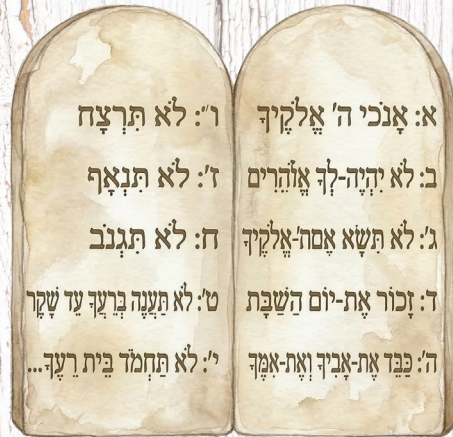 א: אָנֹכִי ה' אֱלֹקֶיךָ
ב: לֹא יִהְיֶה-לְךָ אֱוֹהֵרִים
ג': לֹא תִּשָּׂא אֶםת'-אֱלֹקֶיךָ
ד: זָכוֹר אֶת-יוֹם הַשַּׁבָּת
ה': כַּבֵּד אֶת-אָבִיךָ וְאֶת-אִמֶּךָ
ו": לֹא תִּרְצָח
ז': לֹא תִּנְאָף
ח: לֹא תִּגְנֹב
ט': לֹא תַּעֲנֶה בְּרֵעֲךָ עֵד שָׁקֶר
י': לֹא תַּחְמֹד בֵּית רֵעֶךָ...